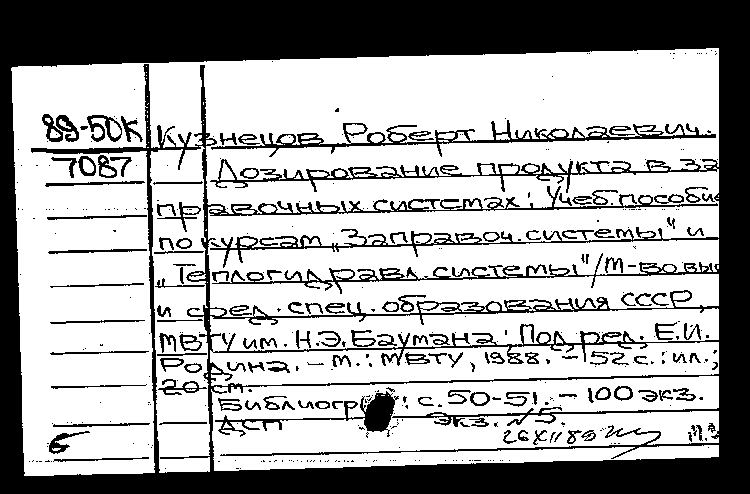 89-50К Кузнецов, Роберт Николаевич.
7087 Дозирование продукта в за
правочных системах: Учеб. пособие
по курсам „Заправоч. системы" и
„Теплогидравл. системы"/М-во выс
и сред. спец. образования СССР,
МВТУ им. Н.Э.Баумана; Под ред. Е.И.
Родина. – М.: МВТУ, 1988. – 52 с.: ил.;
20 см.
Библиогр : с.50-51. – 100 экз.
ДСП Экз. №5.
26XII89